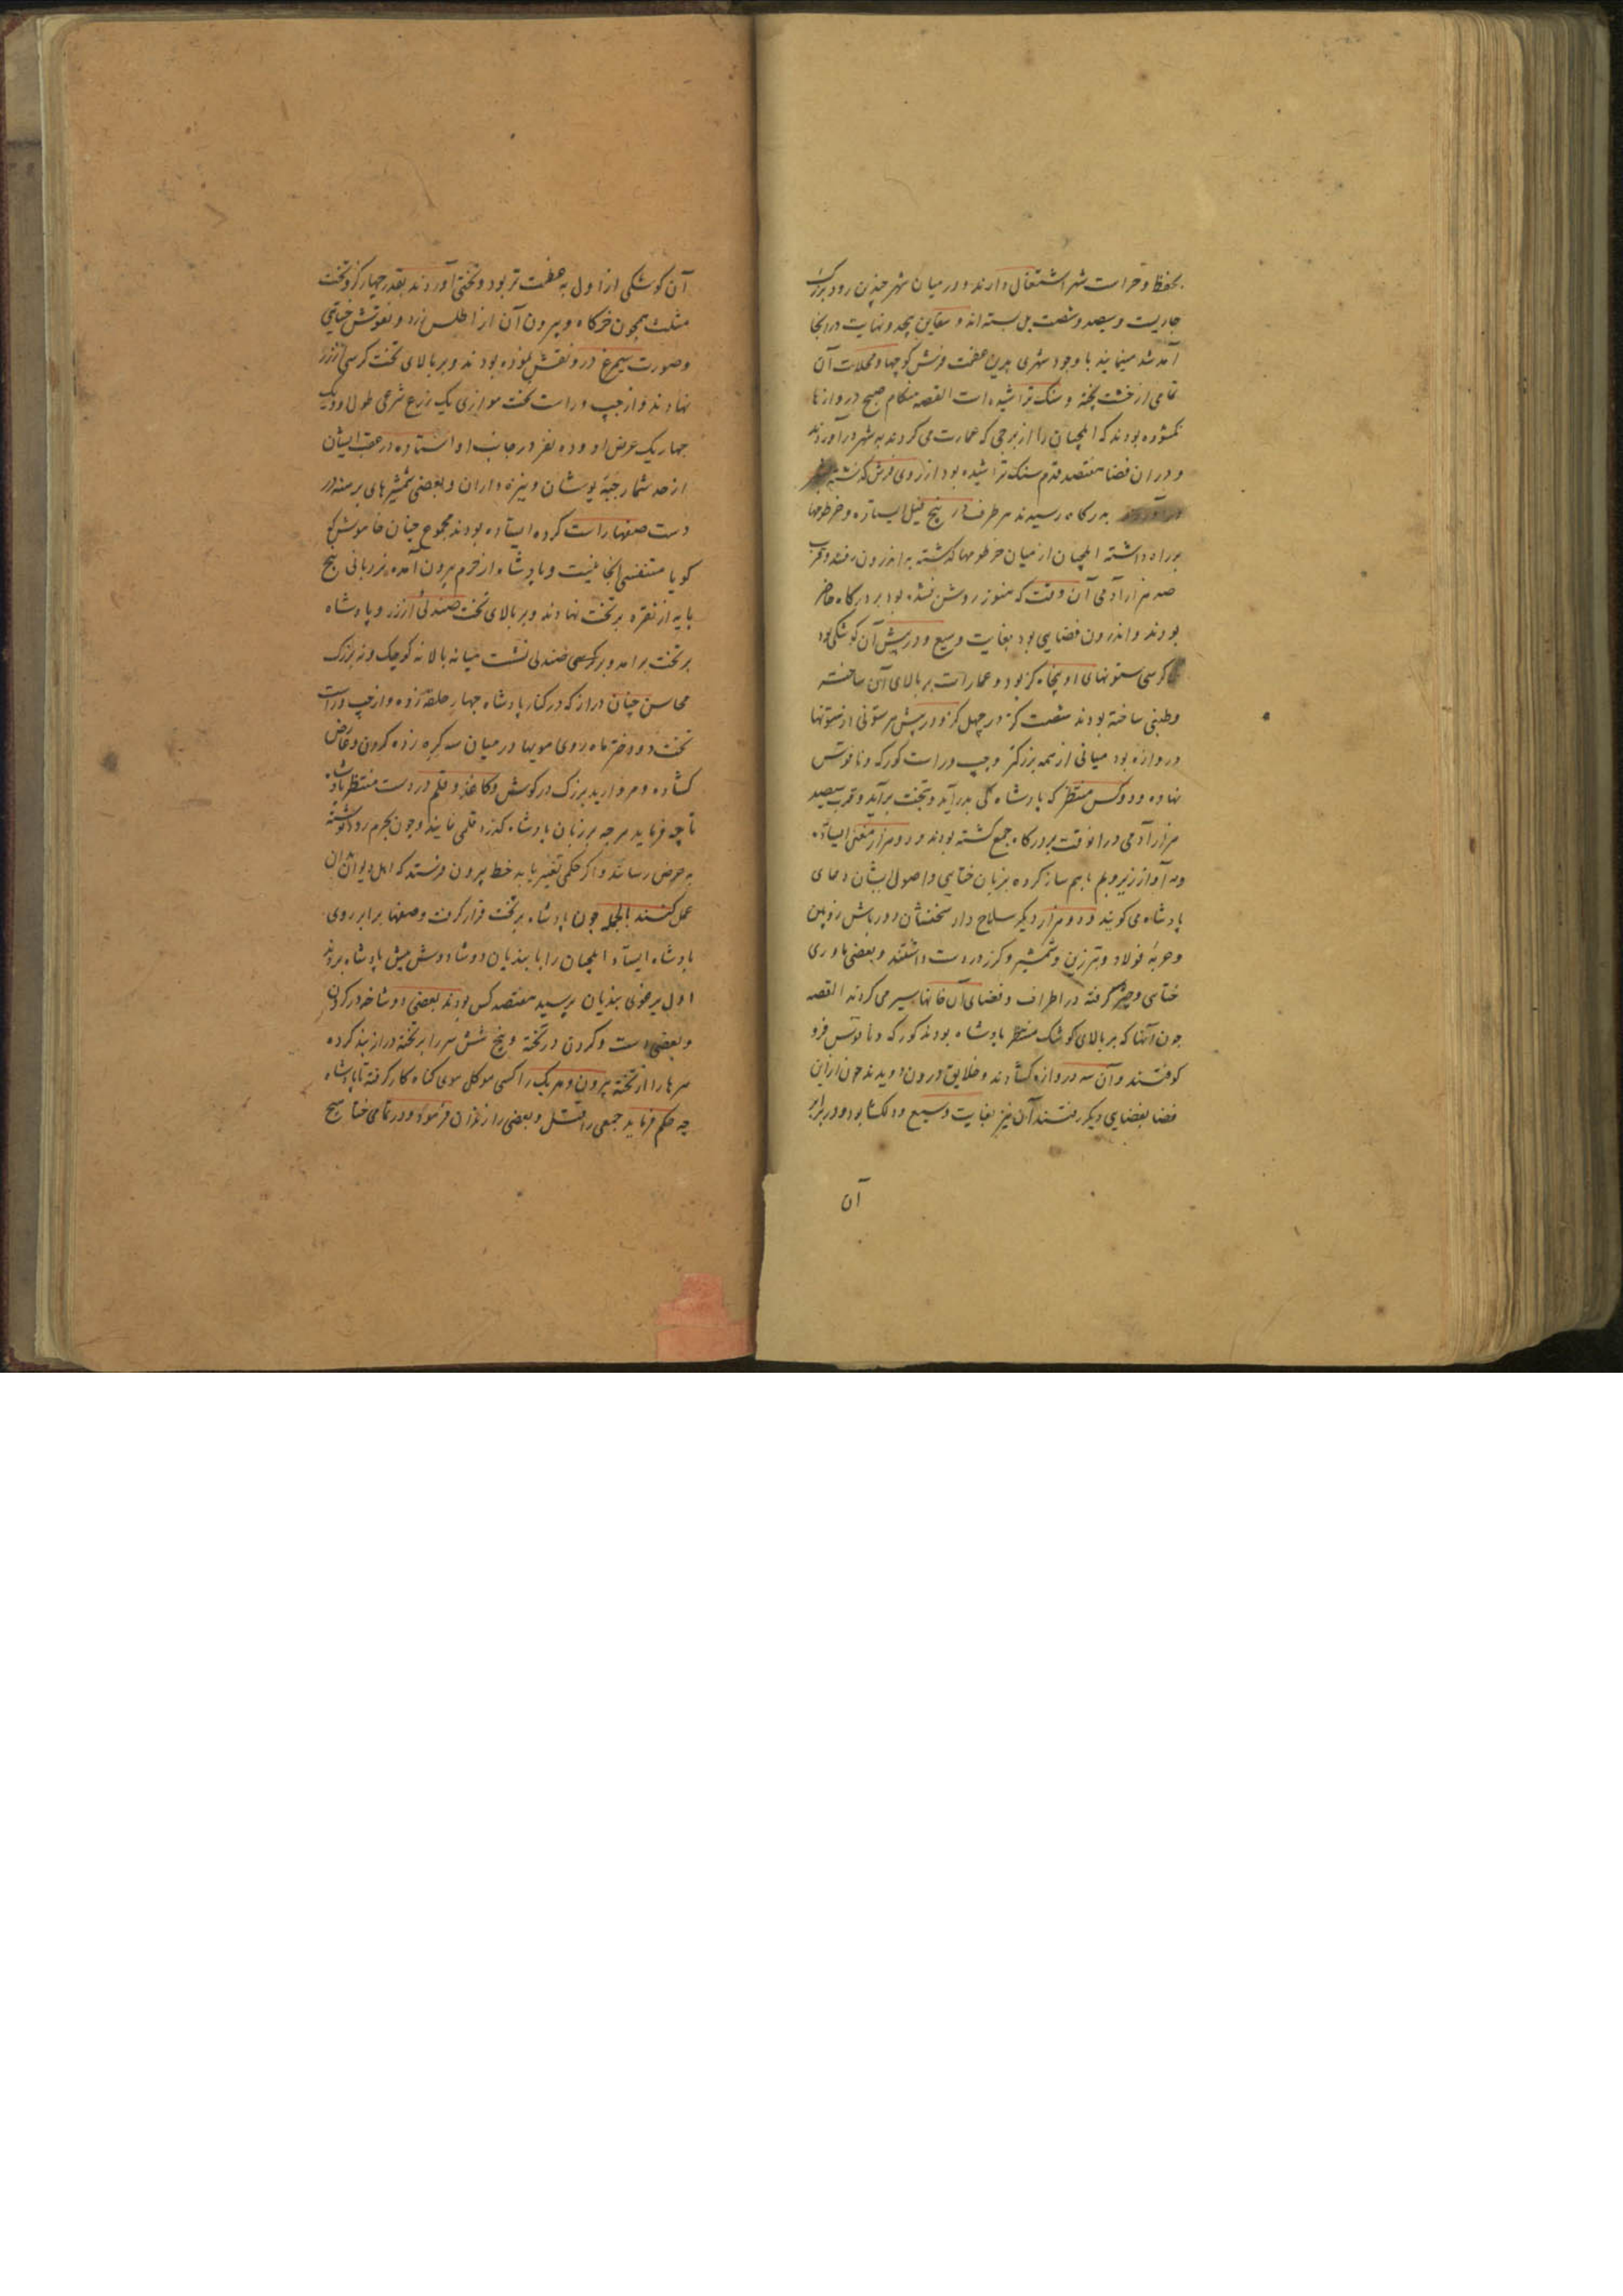 بحفظ و حراست شهر اشتغال دارند و در میان شهر چندن رود بزرک
جاریست و سیصد و شصت پل بسته اند و سفاین بیحد و نهایت در انجا
آمد شد مینمایند با وجود شهری بدین عظمت فرش کوچها و محلات آن
تمامی از خشت پخته و سنک تراشیده است القصه هنکام صبح دروازها
نکشوده بودند که ایلچیان را از برجی که عمارت می کردند به شهر در آوردند
و دران فضا هفتصد قدم سنک تراشیده بود از روی فرش کذشته
به درکاه رسیدند هر طرف در پنج فیل ایستاده و خرطومها
بر راه داشته ایلچیان از میان خرطومها کذشته به اندرون رفتند و قرب
صد هزار آدمی آن وقت که هنوز روشن نشده بود بر درکاه حاضر
بودند و اندرون فضایی بود بغایت وسیع و در پیش آن کوشکی بود
کرسی ستونهای او پنجاه کز بود و عمارات بر بالای آن ساخته
و طنبی ساخته بودند شصت کز در چهل کز و در پیش هر ستونی از ستونها
دروازه بود میانی از همه بزرکتر و چپ و راست کورکه و ناقوس
نهاده و دو کس منتظر که پادشاه کی بدر آید و بتخت برآید و قرب سیصد
هزار آدمی در انوقت بر درکاه جمع کشته بودند و دو هزار مغنی ایستاده
و به آواز زیر و بم باهم ساز کرده بزبان ختایی و اصول ایشان دعای
پادشاه می کویند و دو هزار دیکر سلاح دار دورباش زوپین
و حربهٔ فولاد و تبرزین و شمشیر و کرز در دست داشتند و بعضی باد زن
ختایی و چتر کرفته در اطراف و فضای آن خانها سیر می کردند القصه
چون آنها که بر بالای کوشک منتظر پادشاه بودند کورکه و ناقوس فرو
کوفتند و آن سه دروازه کشادند و خلایق درون دویدند چون از این
فضا بفضایی دیکر رفتند آن نیز بغایت وسیع و دلکشا بود و در برابر
آن
آن کوشکی از اول به عظمت تر بود و تختی آوردند بقدر چهار کز و تخت
مثلث همچون خرکاه و بیرون آن از اطلس زرد و نقوش ختایی
و صورت سیمرغ درو نقش نموده بودند و بر بالای تخت کرسی از زر
نهادند و از چپ و راست تخت موازی یک زرع شرعی طول او و یک
چهار یک عرض او و ده نفر در جانب او استاده در عقب ایشان
از حد شمار جبّه پوشان و نیزه داران و بعضی شمشیرهای برهنه در
دست صفها راست کرده ایستاده بودند مجموع چنان خاموش که
کویا متنفسی انجا نیست و پادشاه از حرم بیرون آمده نردبانی پنج
پایه از نقره بر تخت نهادند و بر بالای تخت صندلی از زر و پادشاه
بر تخت برآمد و بر کرسی صندلی نشست میانه بالا نه کوچک و نه بزرک
محاسن چنان دراز که در کنار پادشاه چهار حلقه زده و از چپ و راست
تخت دو دختر ماه روی مویها در میان سر کره زده کردن و عارض
کشاده و مروارید بزرک در کوش و کاغذ و قلم در دست منتظر پادشاه
تا چه فرماید هرچه بر زبان پادشاه کذرد قلمی نمایند و چون بحرم رود نوشته
به عرض رسانند و اکر حکمی تغییر یابد خط بیرون فرستد که اهل دیوان بدان
عمل کنند بالجمله چون پادشاه بر تخت قرار کرفت و صفها برابر روی
پادشاه ایستاد ایلچیان را با بندیان دوشادوش پیش پادشاه بردند
اول یرغوی بندیان پرسید هفتصد کس بودند بعضی دوشاخه در کردن
و بعضی دست و کردن در تخته و پنج شش سر را بر تخته دراز بند کرده
سرها را از تخته بیرون و هر یک را کسی موکل موی کناه کار کرفته تا پادشاه
چه حکم فرماید جمعی را قتل و بعضی را زندان فرمود و در تمامی ختا هیچ